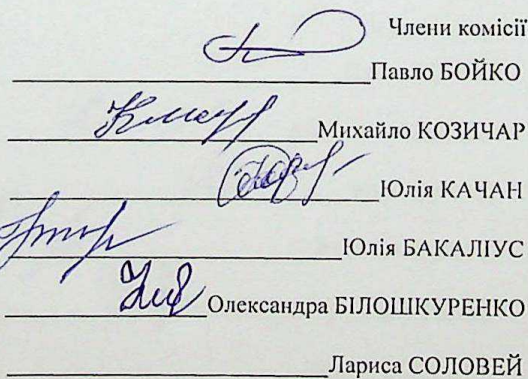 Члени комісії
Павло БОЙКО
Михайло КОЗИЧАР
Юлія КАЧАН
Юлія БАКАЛІУС
Олександра БІЛОШКУРЕНКО
Лариса СОЛОВЕЙ